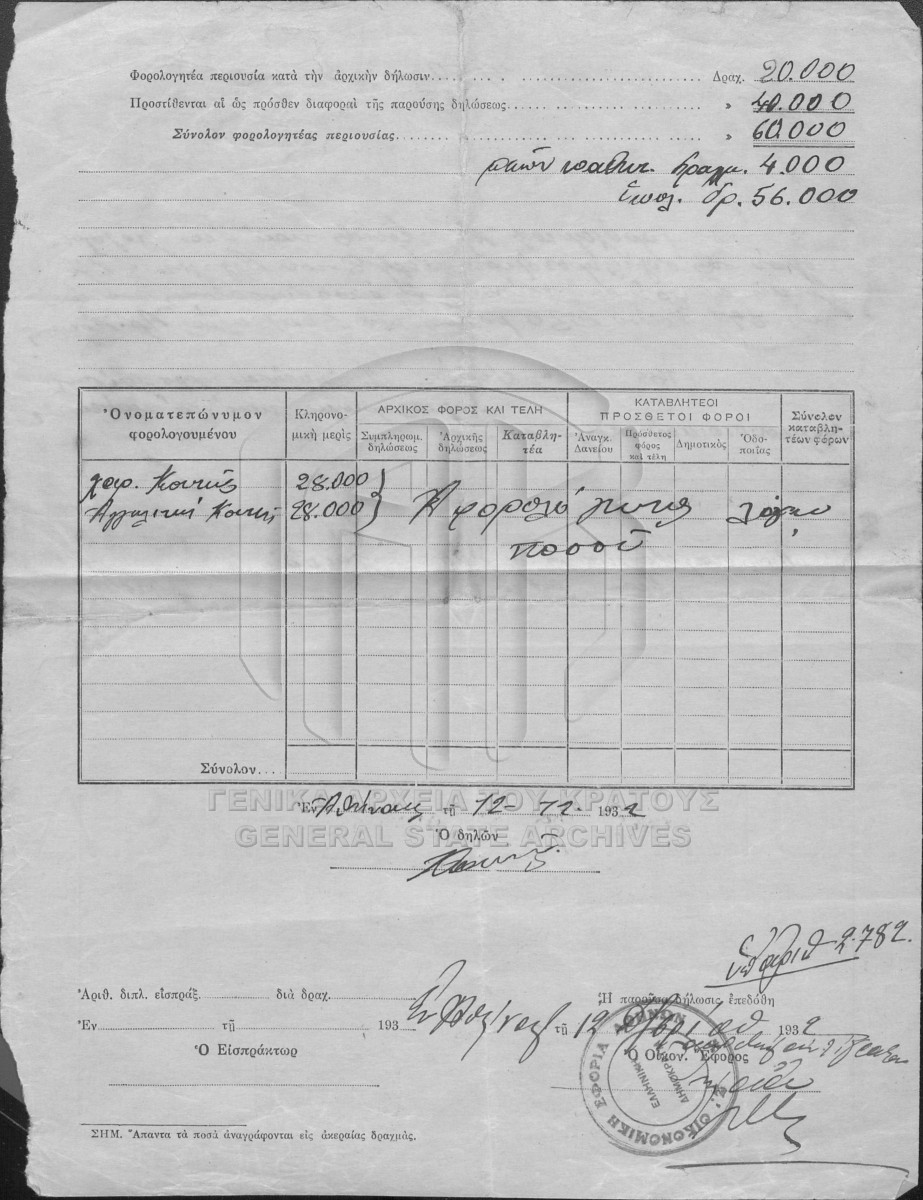 Φορολογητέα περιουσία κατὰ τὴν ἀρχικὴν δήλωσιν........ Δραχ. 20.000
Προστίθενται αἱ ὡς πρόσθεν διαφοραὶ τῆς παρούσης δηλώσεως........ » 40.000
Σύνολον φορολογητέας περιουσίας........ » 60.000
4.000
δρ. 56.000
Ὀνοματεπώνυμον φορολογουμένου
Κληρονομικὴ μερὶς
ΑΡΧΙΚΟΣ ΦΟΡΟΣ ΚΑΙ ΤΕΛΗ
Συμπληρωμ. δηλώσεως
Ἀρχικῆς δηλώσεως
Καταβλητέα
ΚΑΤΑΒΛΗΤΕΟΙ ΠΡΟΣΘΕΤΟΙ ΦΟΡΟΙ
Ἀναγκ. Δανείου
Πρόσθετος φόρος καὶ τέλη
Δημοτικὸς
Ὁδοποιΐας
Σύνολον καταβλητέων φόρων
28.000
28.000
Ἀφορολόγητα λόγῳ
ποσοῦ
Σύνολον....
ΓΕΝΙΚΑ ΑΡΧΕΙΑ ΤΟΥ ΚΡΑΤΟΥΣ
Ἐν Ἀθήναις τῇ 12-12-1932
GENERAL STATE ARCHIVES
Ὁ δηλῶν
ὑπ' ἀριθ 2.782.
Ἀριθ. διπλ. εἰσπράξ. διὰ δραχ.
Ἡ παροῦσα δήλωσις ἐπεδόθη
Ἐν τῇ 193
Ἐν Ἀθήναις τῇ 12 1932
Ὁ Εἰσπράκτωρ
Ὁ Οἰκον. Ἔφορος
ΟΙΚΟΝΟΜΙΚΗ ΕΦΟΡΙΑ ΑΘΗΝΩΝ
ΕΛΛΗΝΙΚΗ ΔΗΜΟΚΡΑΤΙΑ
ΣΗΜ. Ἅπαντα τὰ ποσὰ ἀναγράφονται εἰς ἀκεραίας δραχμάς.